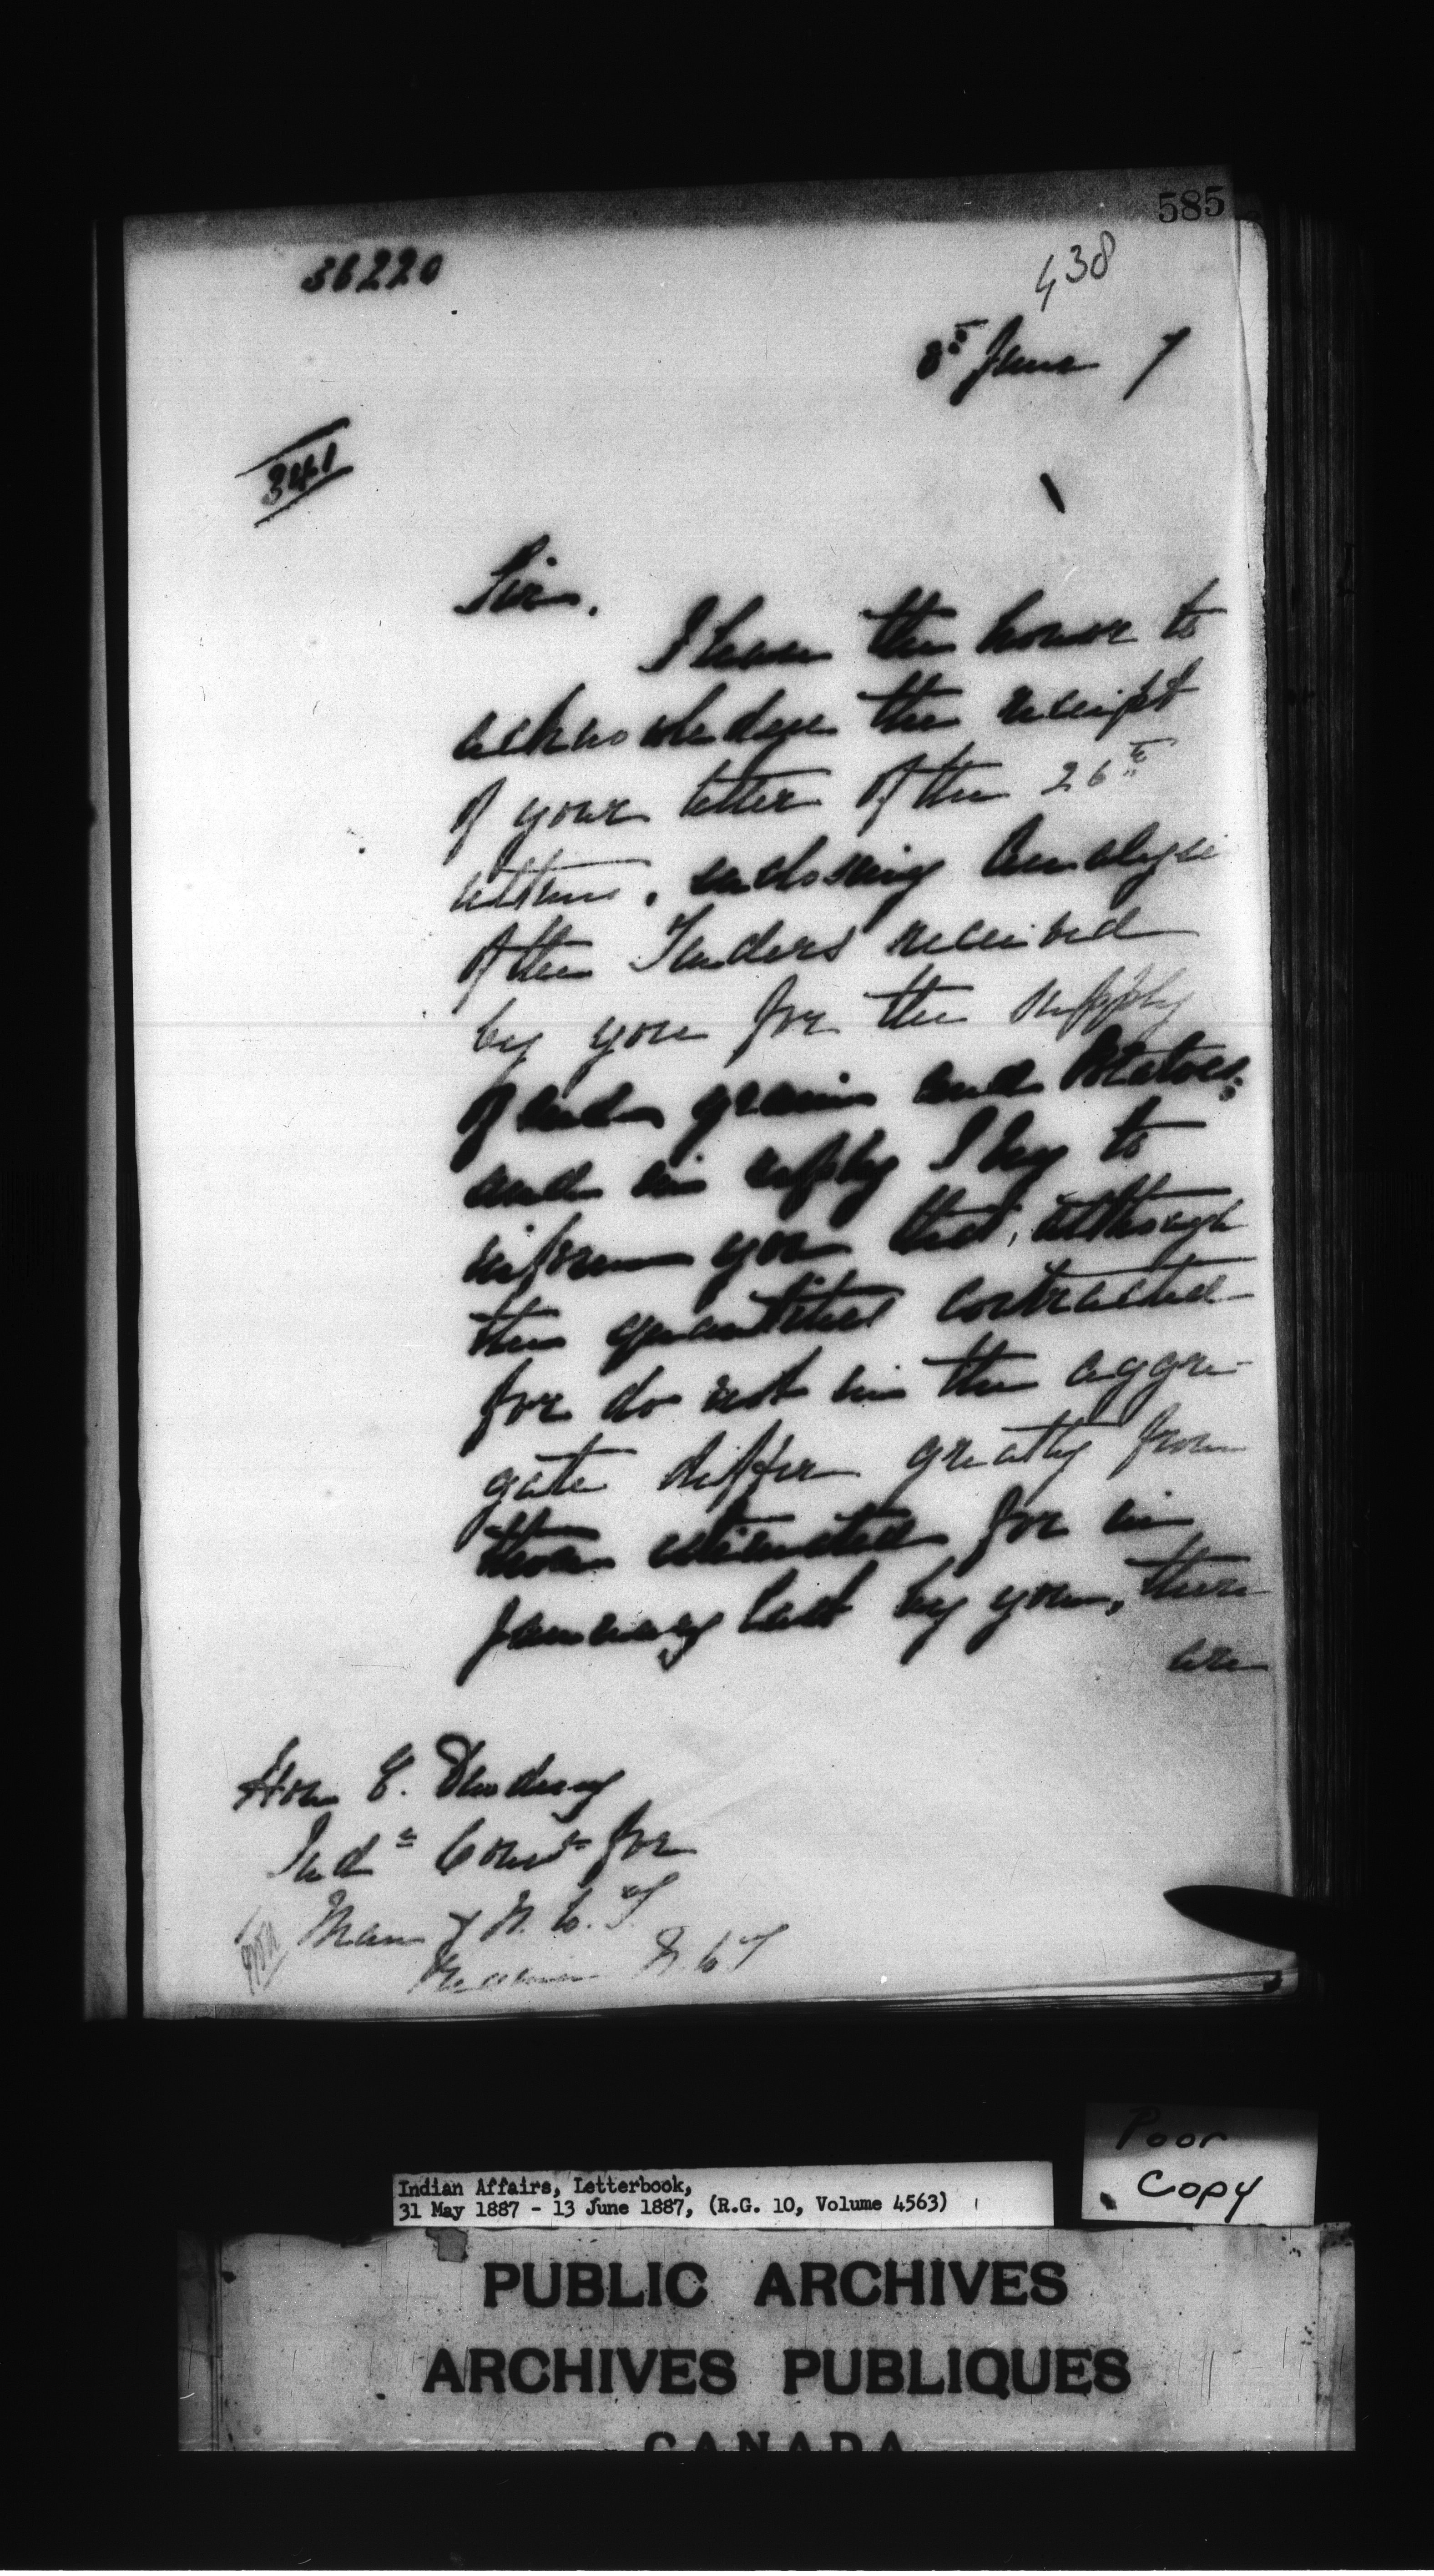 585
36220
438
8th June 7
341
Sir,
I have the honor to
acknowledge the receipt
of your letter of the 26th
ultimo, enclosing Analysis
of the Tenders received
by you for the supply
of seed grain and Potatoes;
and in reply I beg to
inform you that, although
the quantities contracted
for do not in the aggre-
gate differ greatly from
those estimated for in
January last by you, there
are
Hon E. Dewdney
Indn Comr for
Man & N.W.T
Regina N.W.T
Poor
Copy
Indian Affairs, Letterbook,
31 May 1887 - 13 June 1887, (R.G. 10, Volume 4563)
PUBLIC ARCHIVES
ARCHIVES PUBLIQUES
CANADA